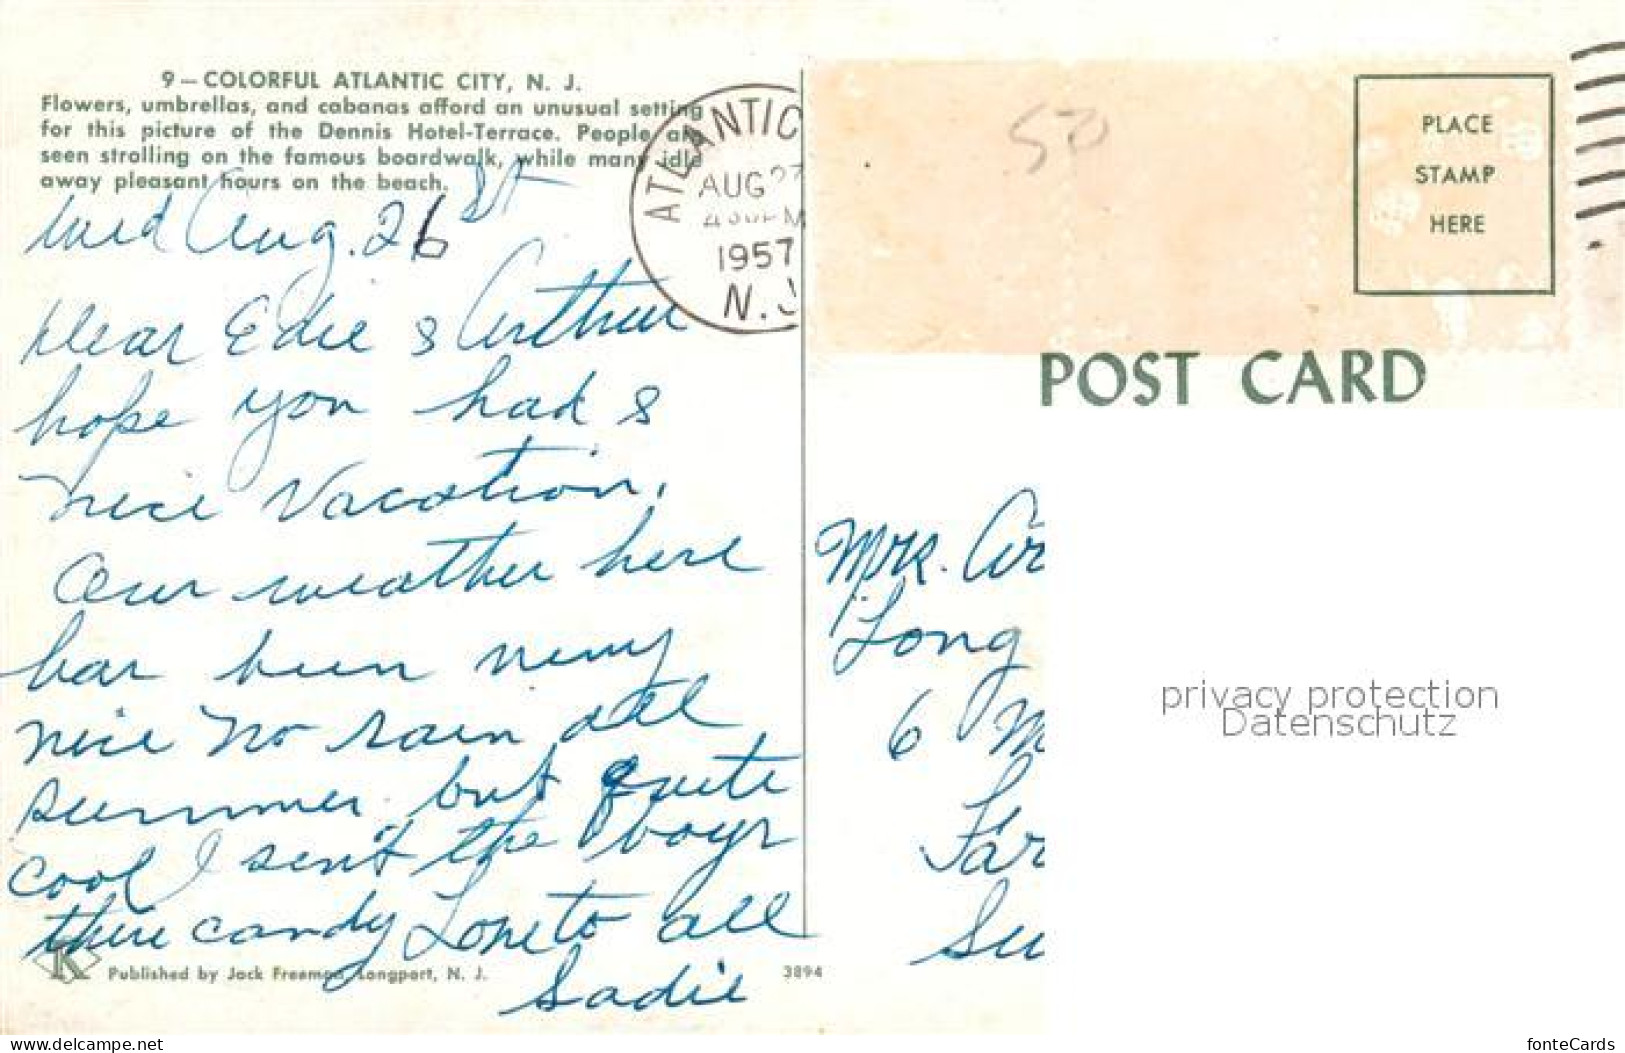 9 — COLORFUL ATLANTIC CITY, N. J.
Flowers, umbrellas, and cabanas afford an unusual setting
for this picture of the Dennis Hotel-Terrace. People are
seen strolling on the famous boardwalk, while many idle
away pleasant hours on the beach.
ATLANTIC
AUG 27
4 PM
1957
N. J.
50
PLACE
STAMP
HERE
POST CARD
Wed Aug. 26 st
Dear Edie & Arthur
hope you had a
nice Vacation.
Our weather here
has been very
nice no rain all
summer but quite
cool I sent the boys
there candy Love to all
Sadie
Mrs. Ar
Long
6 M
Far
Su
privacy protection
Datenschutz
K
Published by Jack Freeman, Longport, N. J.
3894
www.delcampe.net
fonteCards